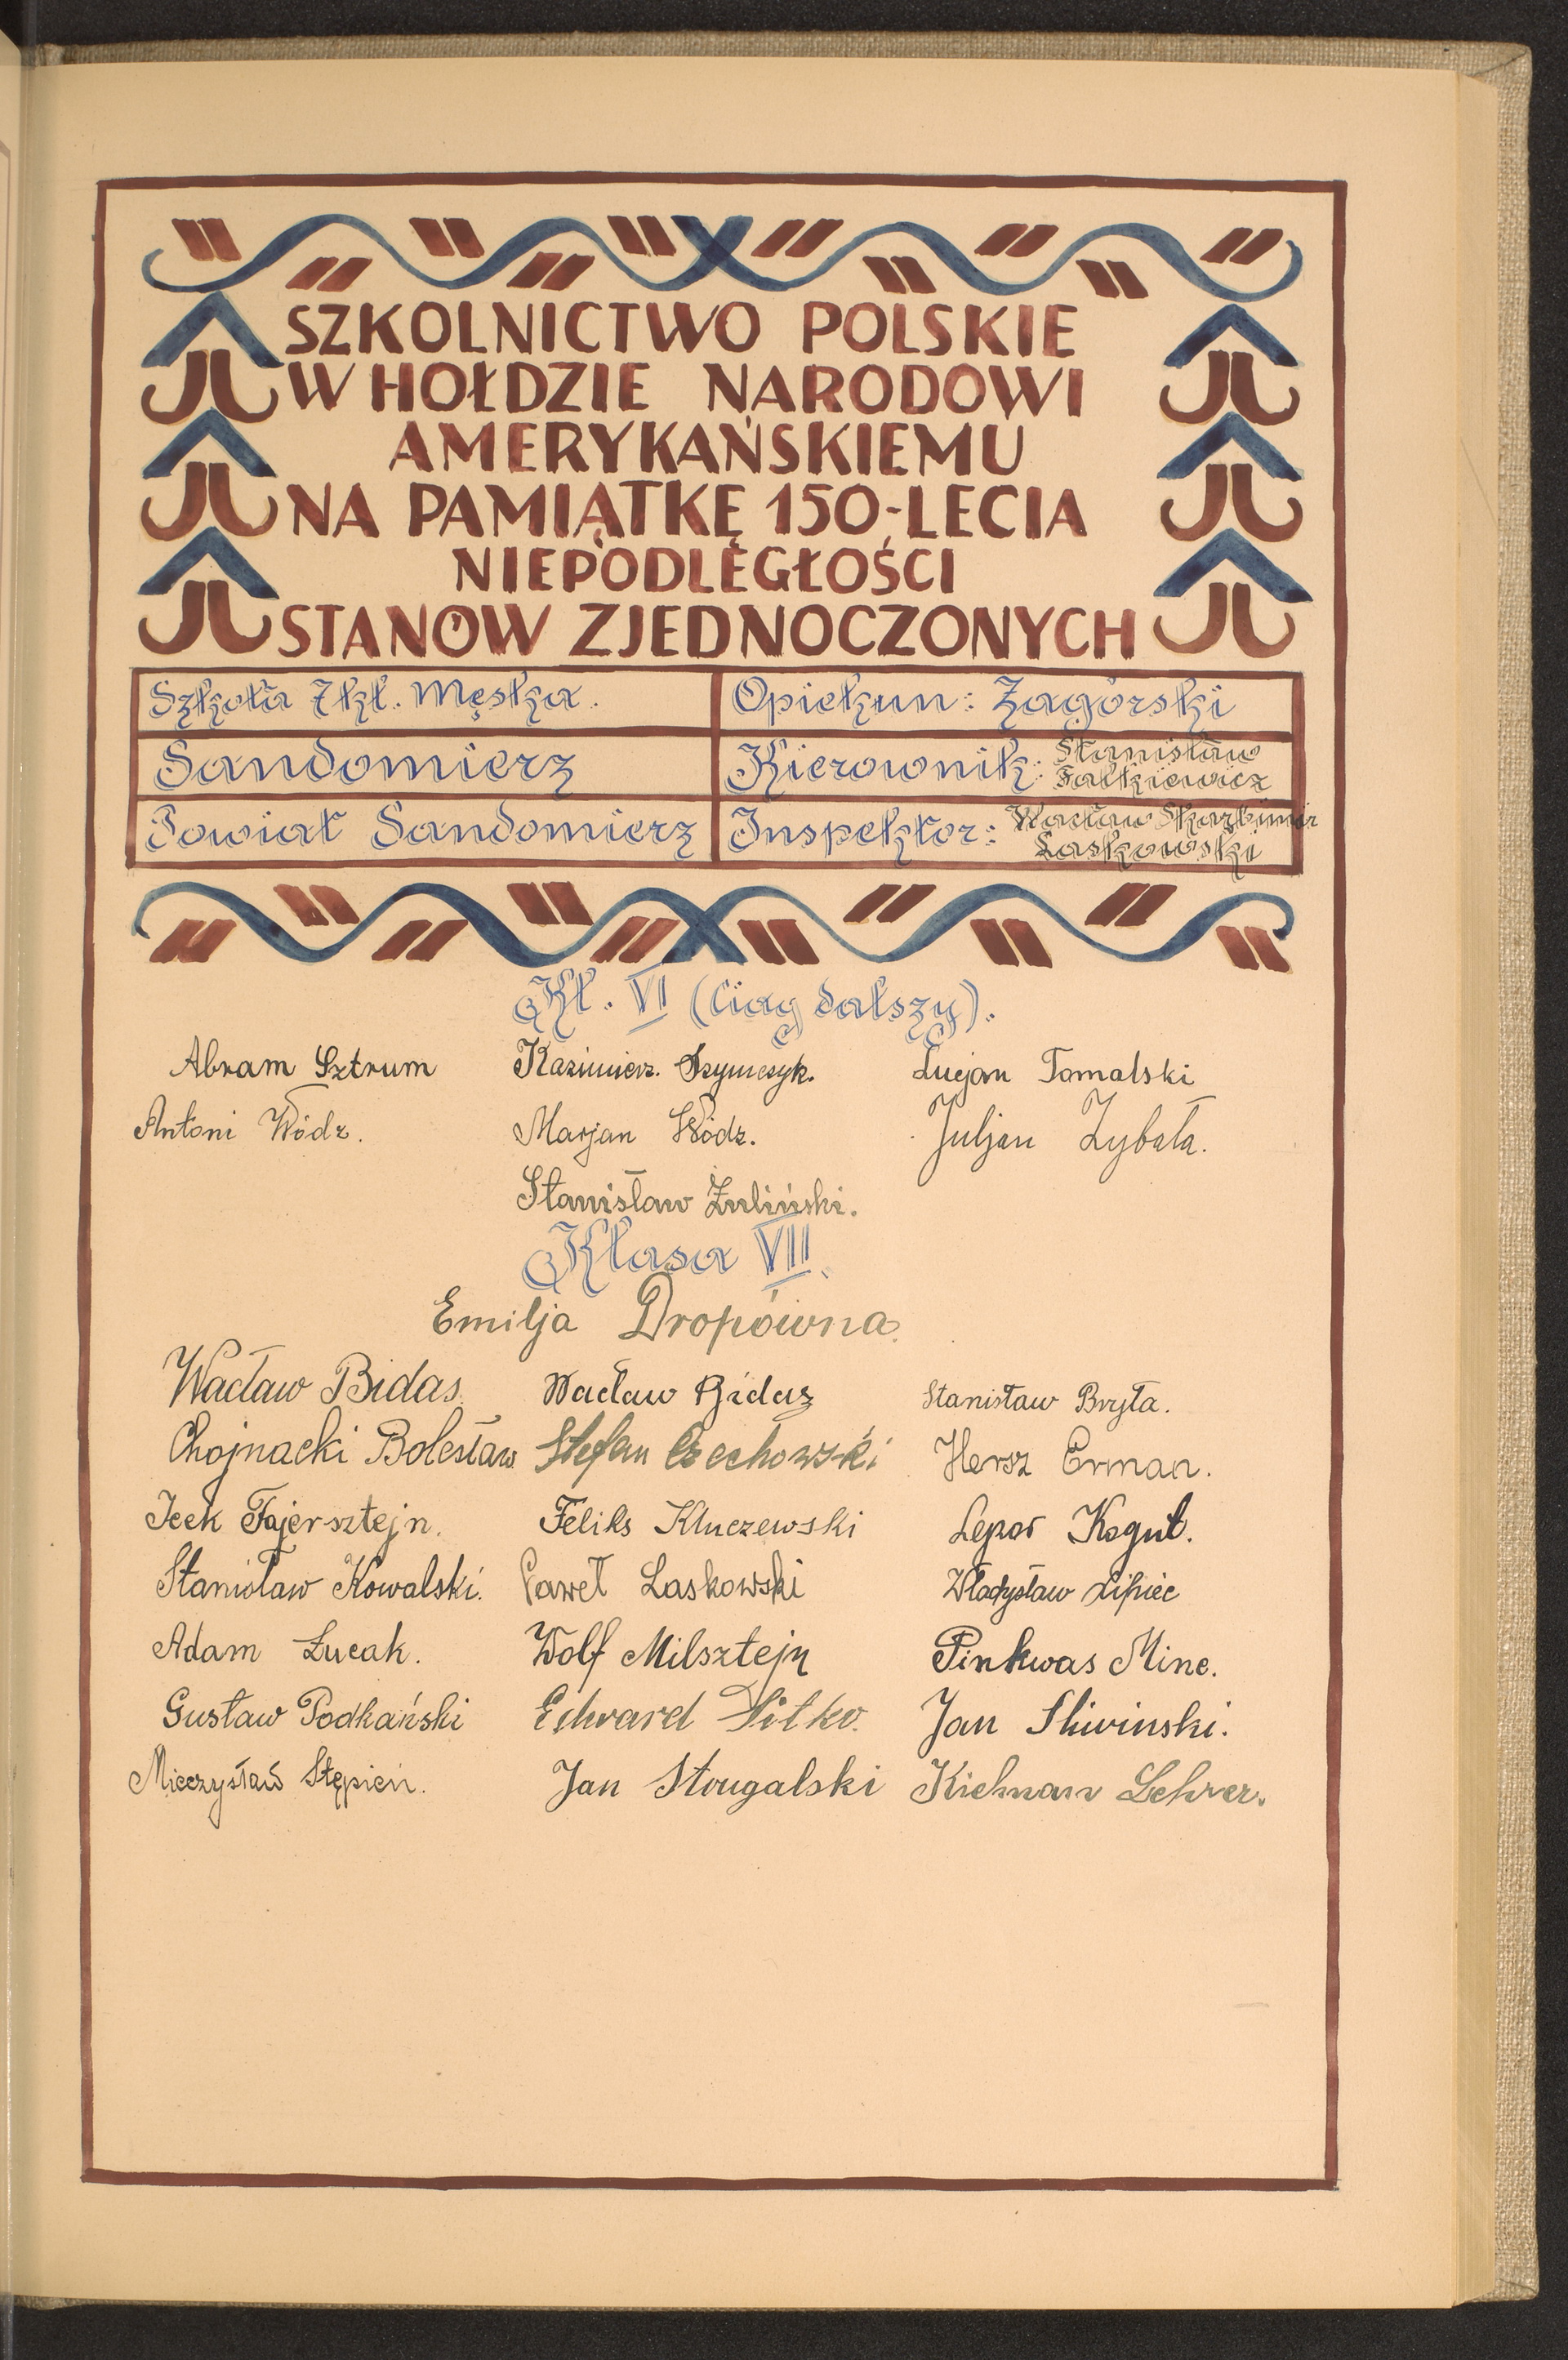 SZKOLNICTWO POLSKIE
W HOŁDZIE NARODOWI
AMERYKAŃSKIEMU
NA PAMIĄTKĘ 150-LECIA
NIEPODLEGŁOŚCI
STANÓW ZJEDNOCZONYCH
Szkoła 7 kl. Męska. Opiekun: Zagórski
Sandomierz Kierownik: Stanisław Falkiewicz
Powiat Sandomierz Inspektor: Wacław Skarbimir Laskowski
Kl. VI (Ciąg dalszy).
Abram Sztrum Kazimierz Szymczyk. Lucjan Tomalski
Antoni Wódz. Marjan Wódz. Juljan Zybała.
Stanisław Żuliński.
Klasa VII.
Emilja Dropówna.
Wacław Bidas. Wacław Bidas Stanisław Bryła.
Chojnacki Bolesław. Stefan Czechowski Hersz Erman.
Icek Fajersztejn. Feliks Kluczewski Lepar Kogut.
Stanisław Kowalski. Paweł Laskowski Władysław Lipiec
Adam Łucak. Wolf Milsztejn Pinkwas Mine.
Gustaw Podkański Edward Sitko. Jan Sliwinski.
Mieczysław Stępień. Jan Stougalski Kielman Lehrer.